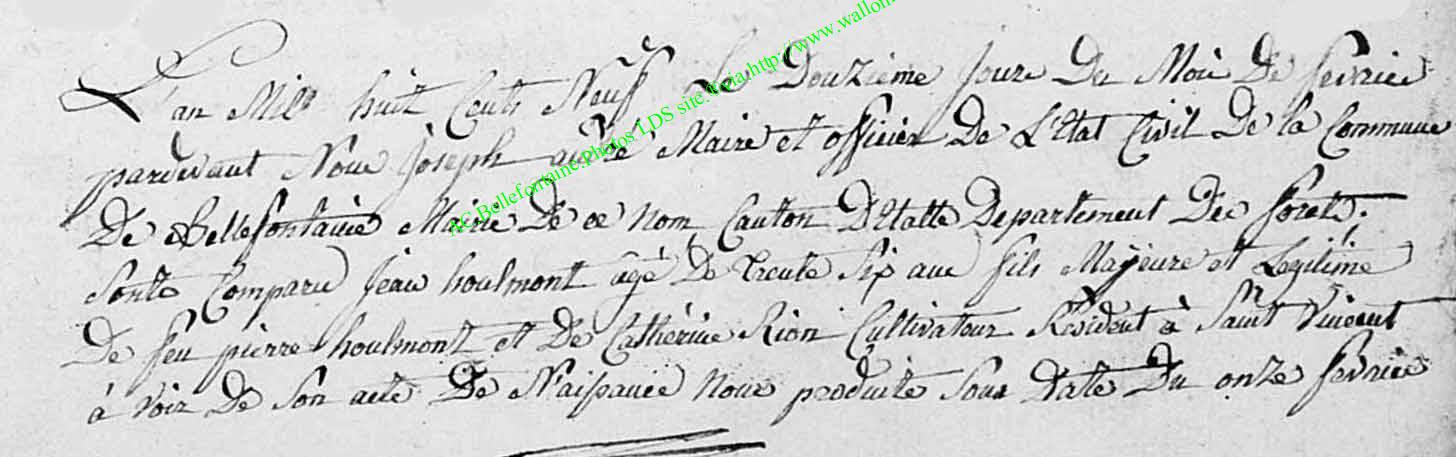 L'an Mile huit Cents Neuf le Douzième Jour Du Mois De fevrier
pardevant Nous Joseph Maire et officier De L'Etat Civil De la Commune
De Bellefontaine Mairie De ce nom Canton D'Etalle Departement Des forets.
Sonts Comparu Jean houlmont âgé De trente Six ans fils Majeure et Legitime
De feu pierre houlmont et De Cathérine Rion Cultivateur Résident à Saint Vincent
à voir De Son acte De Naissance Nous produite Sous Date Du onze fevrier
AC Bellefontaine.Photos LDS site. via.http://www.wallon